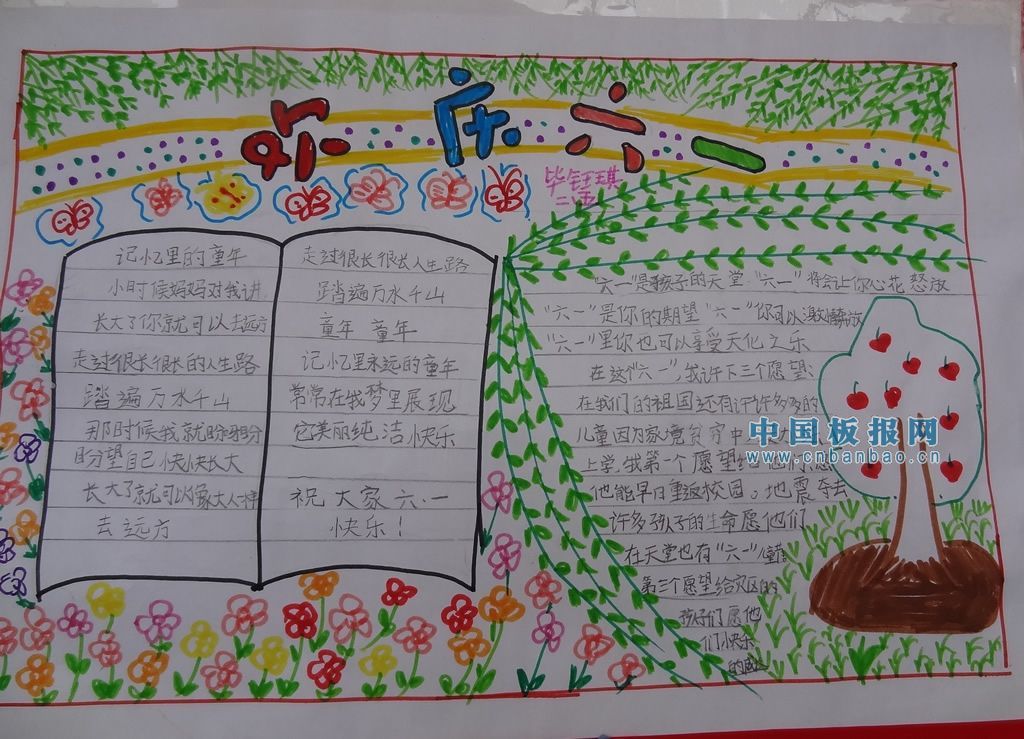 欢庆六一
毕钰琪
记忆里的童年
小时候妈妈对我讲
长大了你就可以去远方
走过很长很长的人生路
踏遍万水千山
那时候我就盼呀盼
盼望自己快快长大
长大了就可以像大人一样
去远方
走过很长很长人生路
踏遍万水千山
童年 童年
记忆里永远的童年
常常在我梦里展现
它美丽纯洁快乐
祝大家六.一
快乐!
"六一"是孩子的天堂."六一"将会让你心花怒放
"六一"是你的期望"六一"你可以激情释放
"六一"里你也可以享受天伦之乐
在这个"六一",我许下三个愿望:
在我们的祖国还有许许多多的
儿童因为家境贫穷中
上学.我第一个愿望给他们,愿
他能早日重返校园。地震夺去
许多孩子的生命愿他们
在天堂也有"六一"儿童
第三个愿望给灾区的
孩子们愿他
们快乐
的成
中国板报网
www.cnbanbao.cn